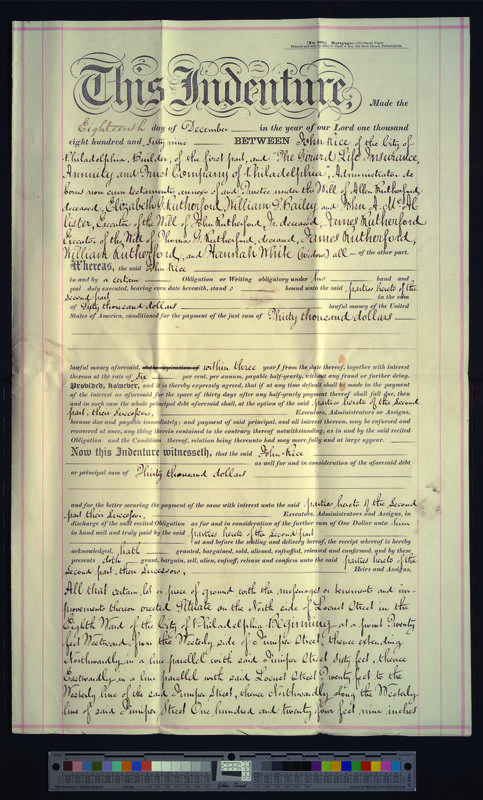 [No. 774.] Mortgage.
This Indenture, Made the
Eighteenth day of December in the year of our Lord one thousand
eight hundred and Sixty nine BETWEEN John Rice of the City of
Philadelphia, Builder, of the first part, and "The Girard Life Insurance,
Annuity and Trust Company of Philadelphia", Administrator de
bonis non cum testamento annexo of and Trustee under the Will of Allen Rutherford
deceased, Elizabeth G. Rutherford, William T. Bailey and John A. McAl
lister, Executor of the Will of John Rutherford Jr. deceased, James Rutherford
Executor of the Will of Thomas G. Rutherford, deceased, James Rutherford,
William Rutherford, and Hannah White (widow) all of the other part.
Whereas, the said John Rice
in and by a certain Obligation or Writing obligatory under his hand and
seal duly executed, bearing even date herewith, stand s bound unto the said parties hereto of the
Second part in the sum
of Sixty thousand dollars lawful money of the United
States of America, conditioned for the payment of the just sum of Thirty thousand dollars
lawful money aforesaid, at the expiration of within three years from the date thereof, together with interest
thereon at the rate of Six per cent. per annum, payable half-yearly, without any fraud or further delay.
Provided, however, and it is thereby expressly agreed, that if at any time default shall be made in the payment
of the interest as aforesaid for the space of thirty days after any half-yearly payment thereof shall fall due, then
and in such case the whole principal debt aforesaid shall, at the option of the said parties hereto of the Second
part, their Successors, Executors, Administrators or Assigns,
become due and payable immediately; and payment of said principal, and all interest thereon, may be enforced and
recovered at once, any thing therein contained to the contrary thereof notwithstanding, as in and by the said recited
Obligation and the Condition thereof, relation being thereunto had may more fully and at large appear.
Now this Indenture witnesseth, that the said John Rice
as well for and in consideration of the aforesaid debt
or principal sum of Thirty thousand dollars
and for the better securing the payment of the same with interest unto the said parties hereto of the Second
part their Successors, Executors, Administrators and Assigns, in
discharge of the said recited Obligation as for and in consideration of the further sum of One Dollar unto him
in hand well and truly paid by the said parties hereto of the Second part
at and before the sealing and delivery hereof, the receipt whereof is hereby
acknowledged, hath granted, bargained, sold, aliened, enfeoffed, released and confirmed, and by these
presents doth grant, bargain, sell, alien, enfeoff, release and confirm unto the said parties hereto of the
Second part, their Successors, Heirs and Assigns,
All that certain lot or piece of ground with the messuages or tenements and im-
provements thereon erected Situate on the North side of Locust Street in the
Eighth Ward of the City of Philadelphia Beginning at a point Twenty
feet Westward from the Westerly side of Juniper Street, thence extending
Northwardly in a line parallel with said Juniper Street Sixty feet, thence
Eastwardly in a line parallel with said Locust Street Twenty feet to the
Westerly line of the said Juniper Street, thence Northwardly along the Westerly
line of said Juniper Street One hundred and twenty four feet nine inches